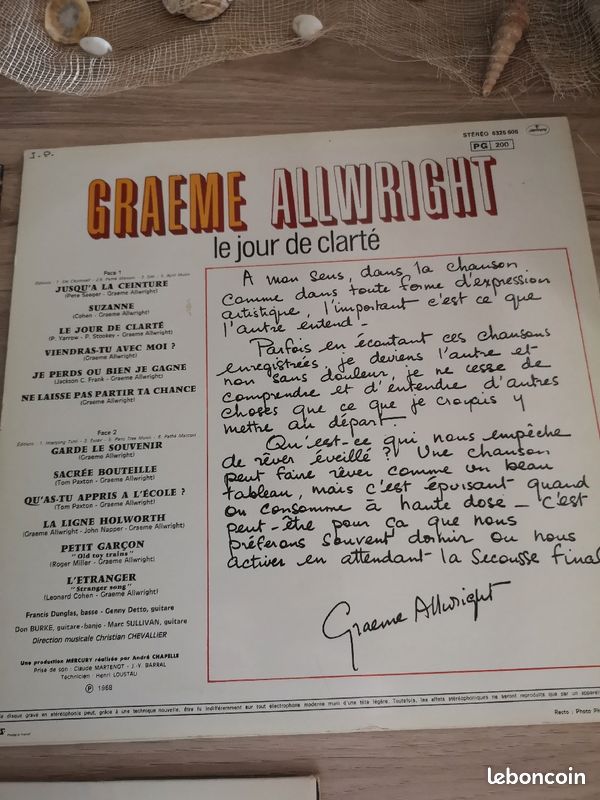 J.P.
STÉRÉO 6325 606
PG 200
GRAEME ALLWRIGHT
le jour de clarté
Face 1
JUSQU'A LA CEINTURE
(Pete Seeger - Graeme Allwright)
SUZANNE
(Cohen - Graeme Allwright)
LE JOUR DE CLARTÉ
(P. Yarrow - P. Stookey - Graeme Allwright)
VIENDRAS-TU AVEC MOI ?
(Graeme Allwright)
JE PERDS OU BIEN JE GAGNE
(Jackson C. Frank - Graeme Allwright)
NE LAISSE PAS PARTIR TA CHANCE
(Graeme Allwright)
Face 2
GARDE LE SOUVENIR
(Graeme Allwright)
SACRÉE BOUTEILLE
(Tom Paxton - Graeme Allwright)
QU'AS-TU APPRIS A L'ÉCOLE ?
(Tom Paxton - Graeme Allwright)
LA LIGNE HOLWORTH
(Graeme Allwright - John Napper - Graeme Allwright)
PETIT GARÇON
"Old toy trains"
(Roger Miller - Graeme Allwright)
L'ETRANGER
"Stranger song"
(Leonard Cohen - Graeme Allwright)
Francis Dunglas, basse - Genny Detto, guitare
Don BURKE, guitare-banjo - Marc SULLIVAN, guitare
Direction musicale Christian CHEVALLIER
Une production MERCURY réalisée par André CHAPELLE
Prise de son : Claude MARTENOT - J.-V. BARRAL
Technicien : Henri LOUSTAU
℗ 1968
A mon sens, dans la chanson
comme dans toute forme d'expression
artistique, l'important c'est ce que
l'autre entend -
Parfois en écoutant ces chansons
enregistrées, je deviens l'autre et
non sans douleur, je ne cesse de
comprendre et d'entendre d'autres
choses que ce que je croyais y
mettre au départ.
Qu'est-ce qui nous empêche
de rêver éveillé ? Une chanson
peut faire rêver comme un beau
tableau, mais c'est épuisant quand
on consomme à haute dose - C'est
peut-être pour ça que nous
préférons souvent dormir ou nous
activer en attendant la Secousse Final
Graeme Allwright
disque gravé en stéréophonie peut, grâce à une technique nouvelle, être lu indifféremment sur tout électrophone moderne muni d'une tête légère. Toutefois, les effets stéréophoniques ne seront reproduits que par un appareil
Recto : Photo
leboncoin